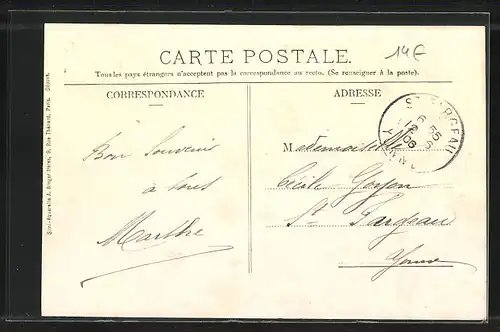 CARTE POSTALE.
14€
Tous les pays étrangers n'acceptent pas la correspondance au recto. (Se renseigner à la poste).
CORRESPONDANCE
ADRESSE
Simi-Aquarelle A. Breger frères, 9, Rue Thénard, Paris. Déposé.
ST FARGEAU
YONNE
Bon Souvenir
à tous
Marthe
Mademoiselle
Cécile
St Fargeau
Yonne